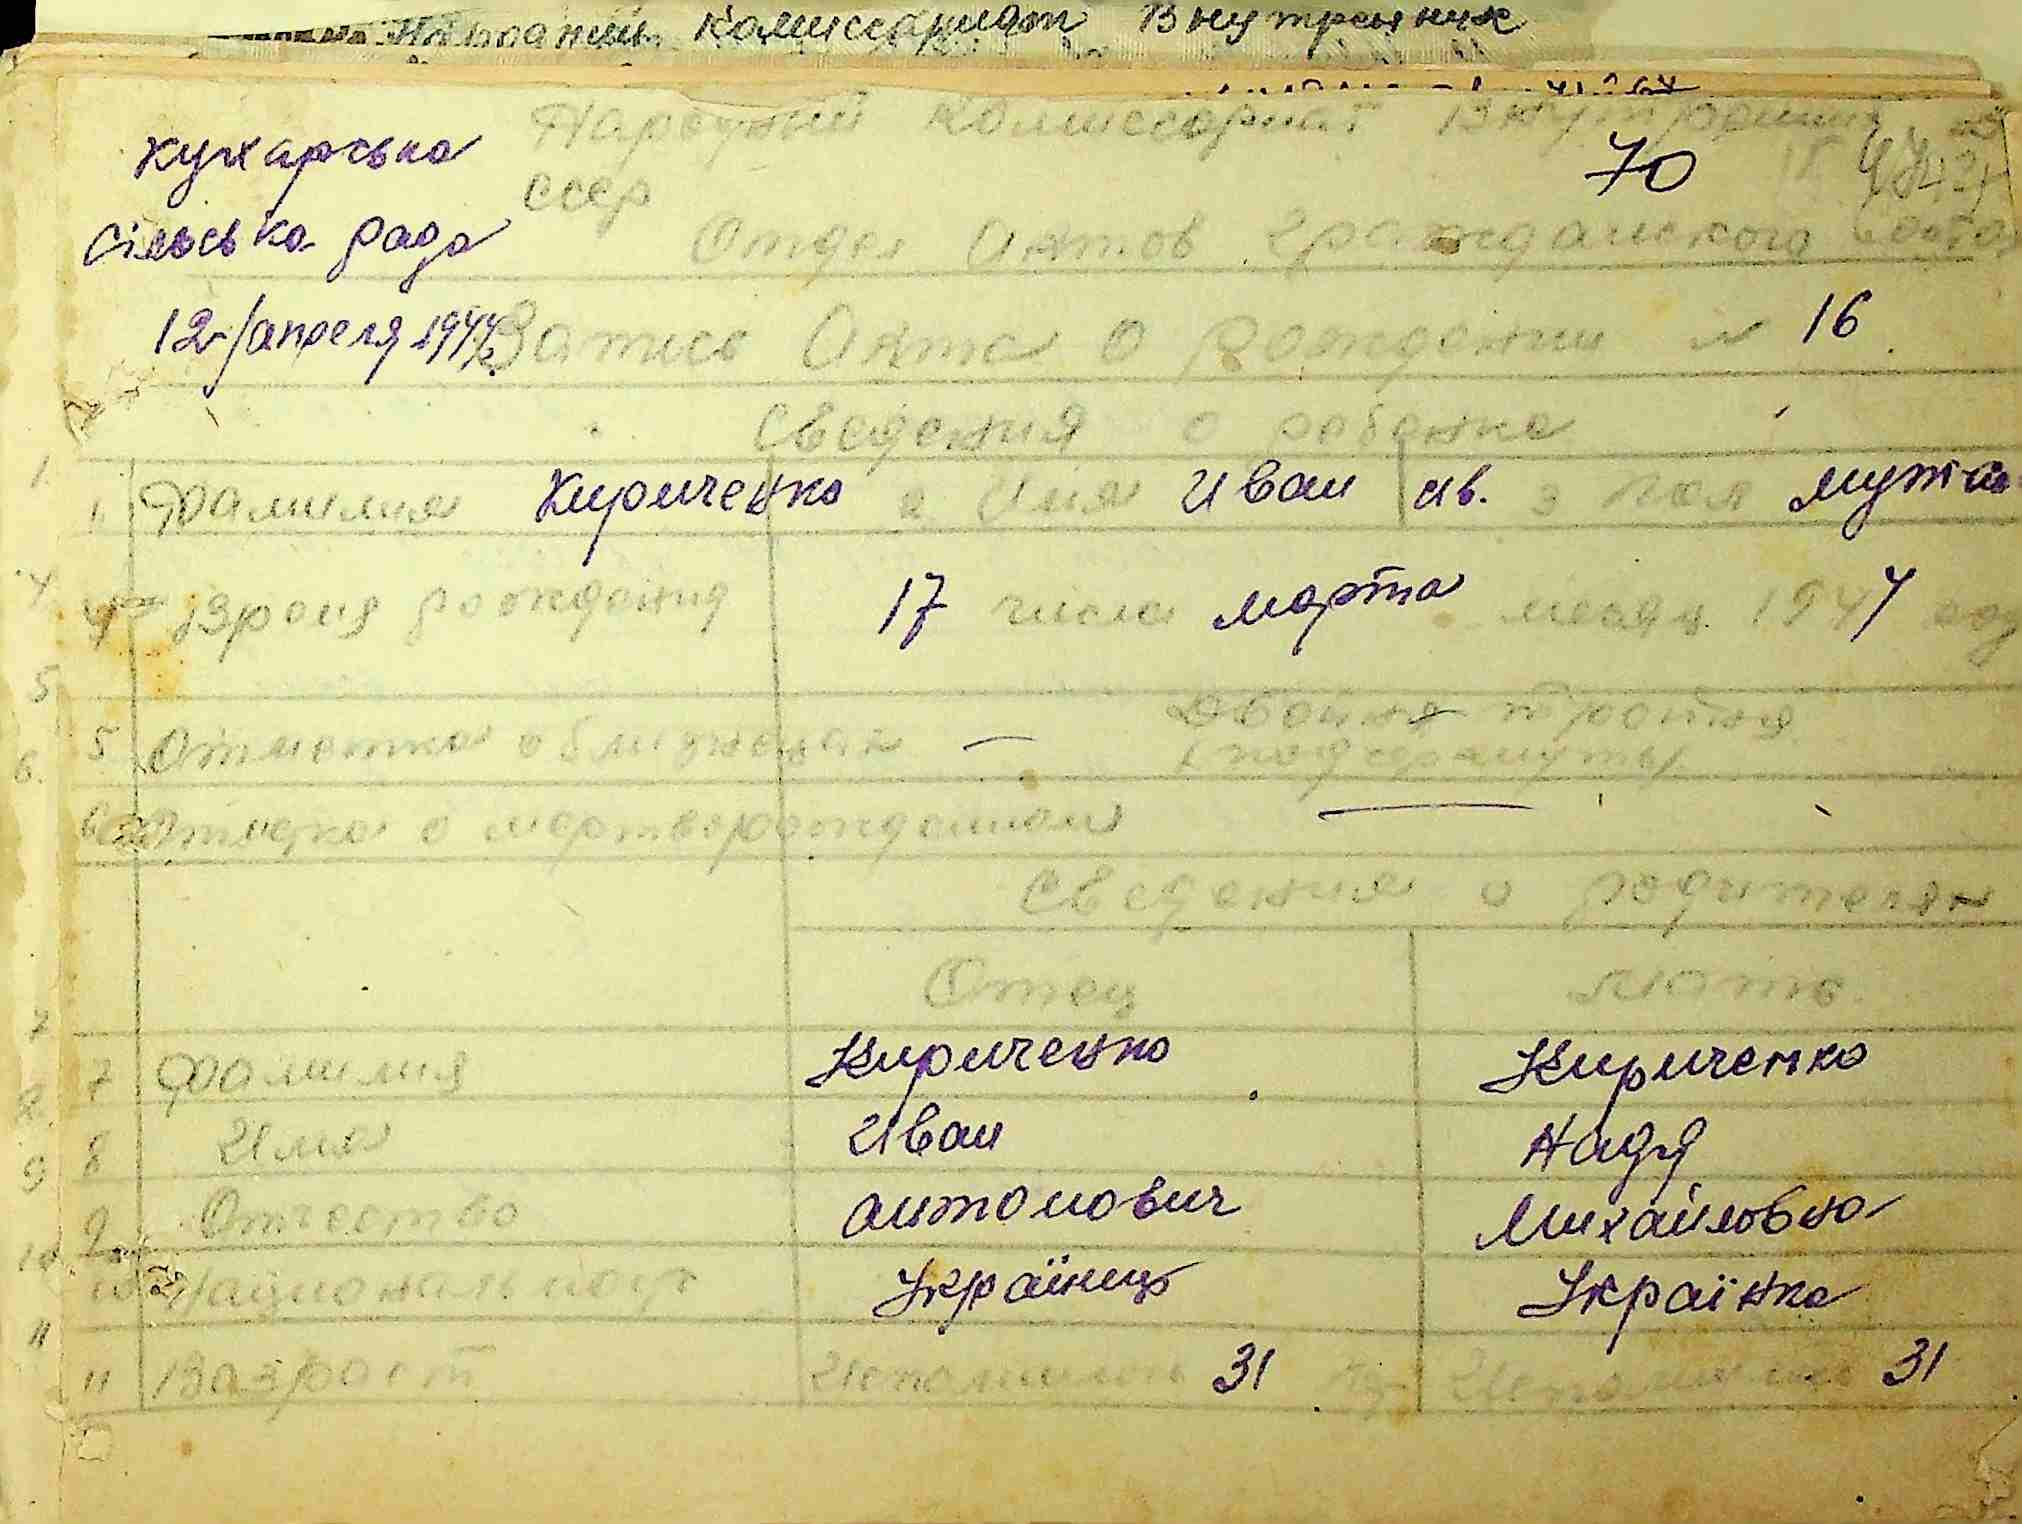 Комиссариат Внутренних
Народный Комиссариат Внутренних
Кухарська
70
ссср
сільська рада
Отдел Актов гражданского
12/апреля 1944
Запись Акта о рождении № 16
Сведения о ребенке
1. Фамилия Кириченко 2 Имя Иван Ив. 3 Пол мужс
4 Время рождения 17 числа марта месяц 1944 год
5 Отметка о близнецах — Двойня тройня
(подчеркнуть)
6 Отметка о мертворожденном —
Сведения о родителях
Отец Мать
7 Фамилия Кириченко Кириченко
8 Имя Иван Надя
9 Отчество Антонович Михайловна
10 Національность Українець Українка
11 Вазраст Исполнилось 31 Исполнилось 31